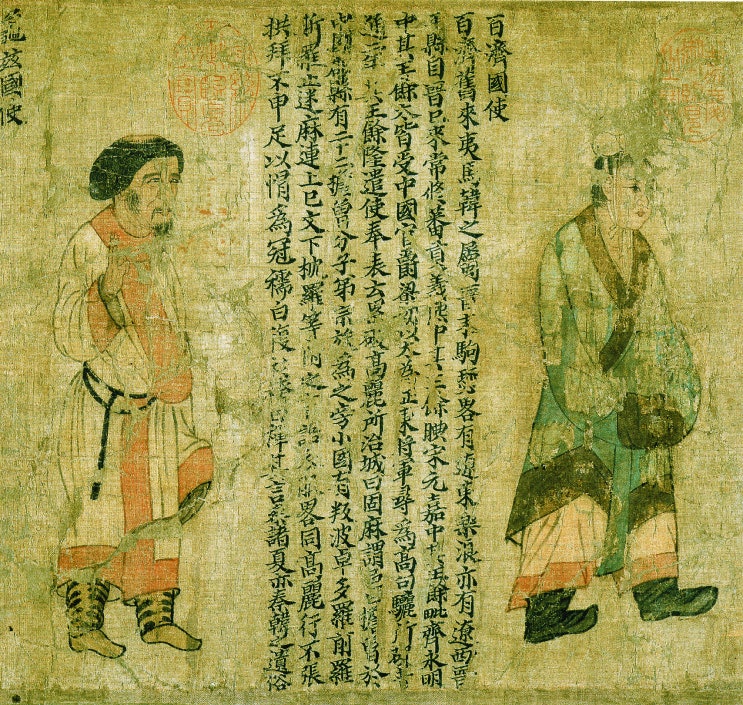 百濟國使
百濟舊來夷馬韓之屬晉末駒麗畧有遼東樂浪亦有遼西晉
平縣自晉已來常修蕃貢義熙中其王餘腆宋元嘉中其王餘毗齊永明
中其王餘太皆受中國官爵梁初以太爲征東將軍尋爲高句驪所破
其王餘隆遣使奉表云累破高麗所治城曰固麻謂邑曰檐魯於
中國郡縣有二十二檐魯分子弟宗族爲之旁小國有叛波卓多羅前羅
斯羅止迷麻連上巳文下枕羅等附之言語衣服畧同高麗行不張
拱拜不申足以帽爲冠襦曰複衫袴曰褌其言參諸夏亦秦韓之遺俗
龜茲國使